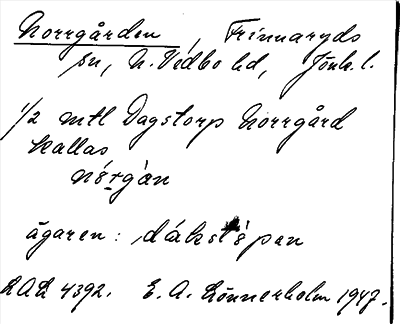 Norrgården, Frinnaryds
sn, N. Vedbo hd, Jönk. l.
1/2 mtl Dagstorp Norrgård
kallas
nórgàn
ägaren:
LAL 4392. E. A. Lönnerholm 1947.